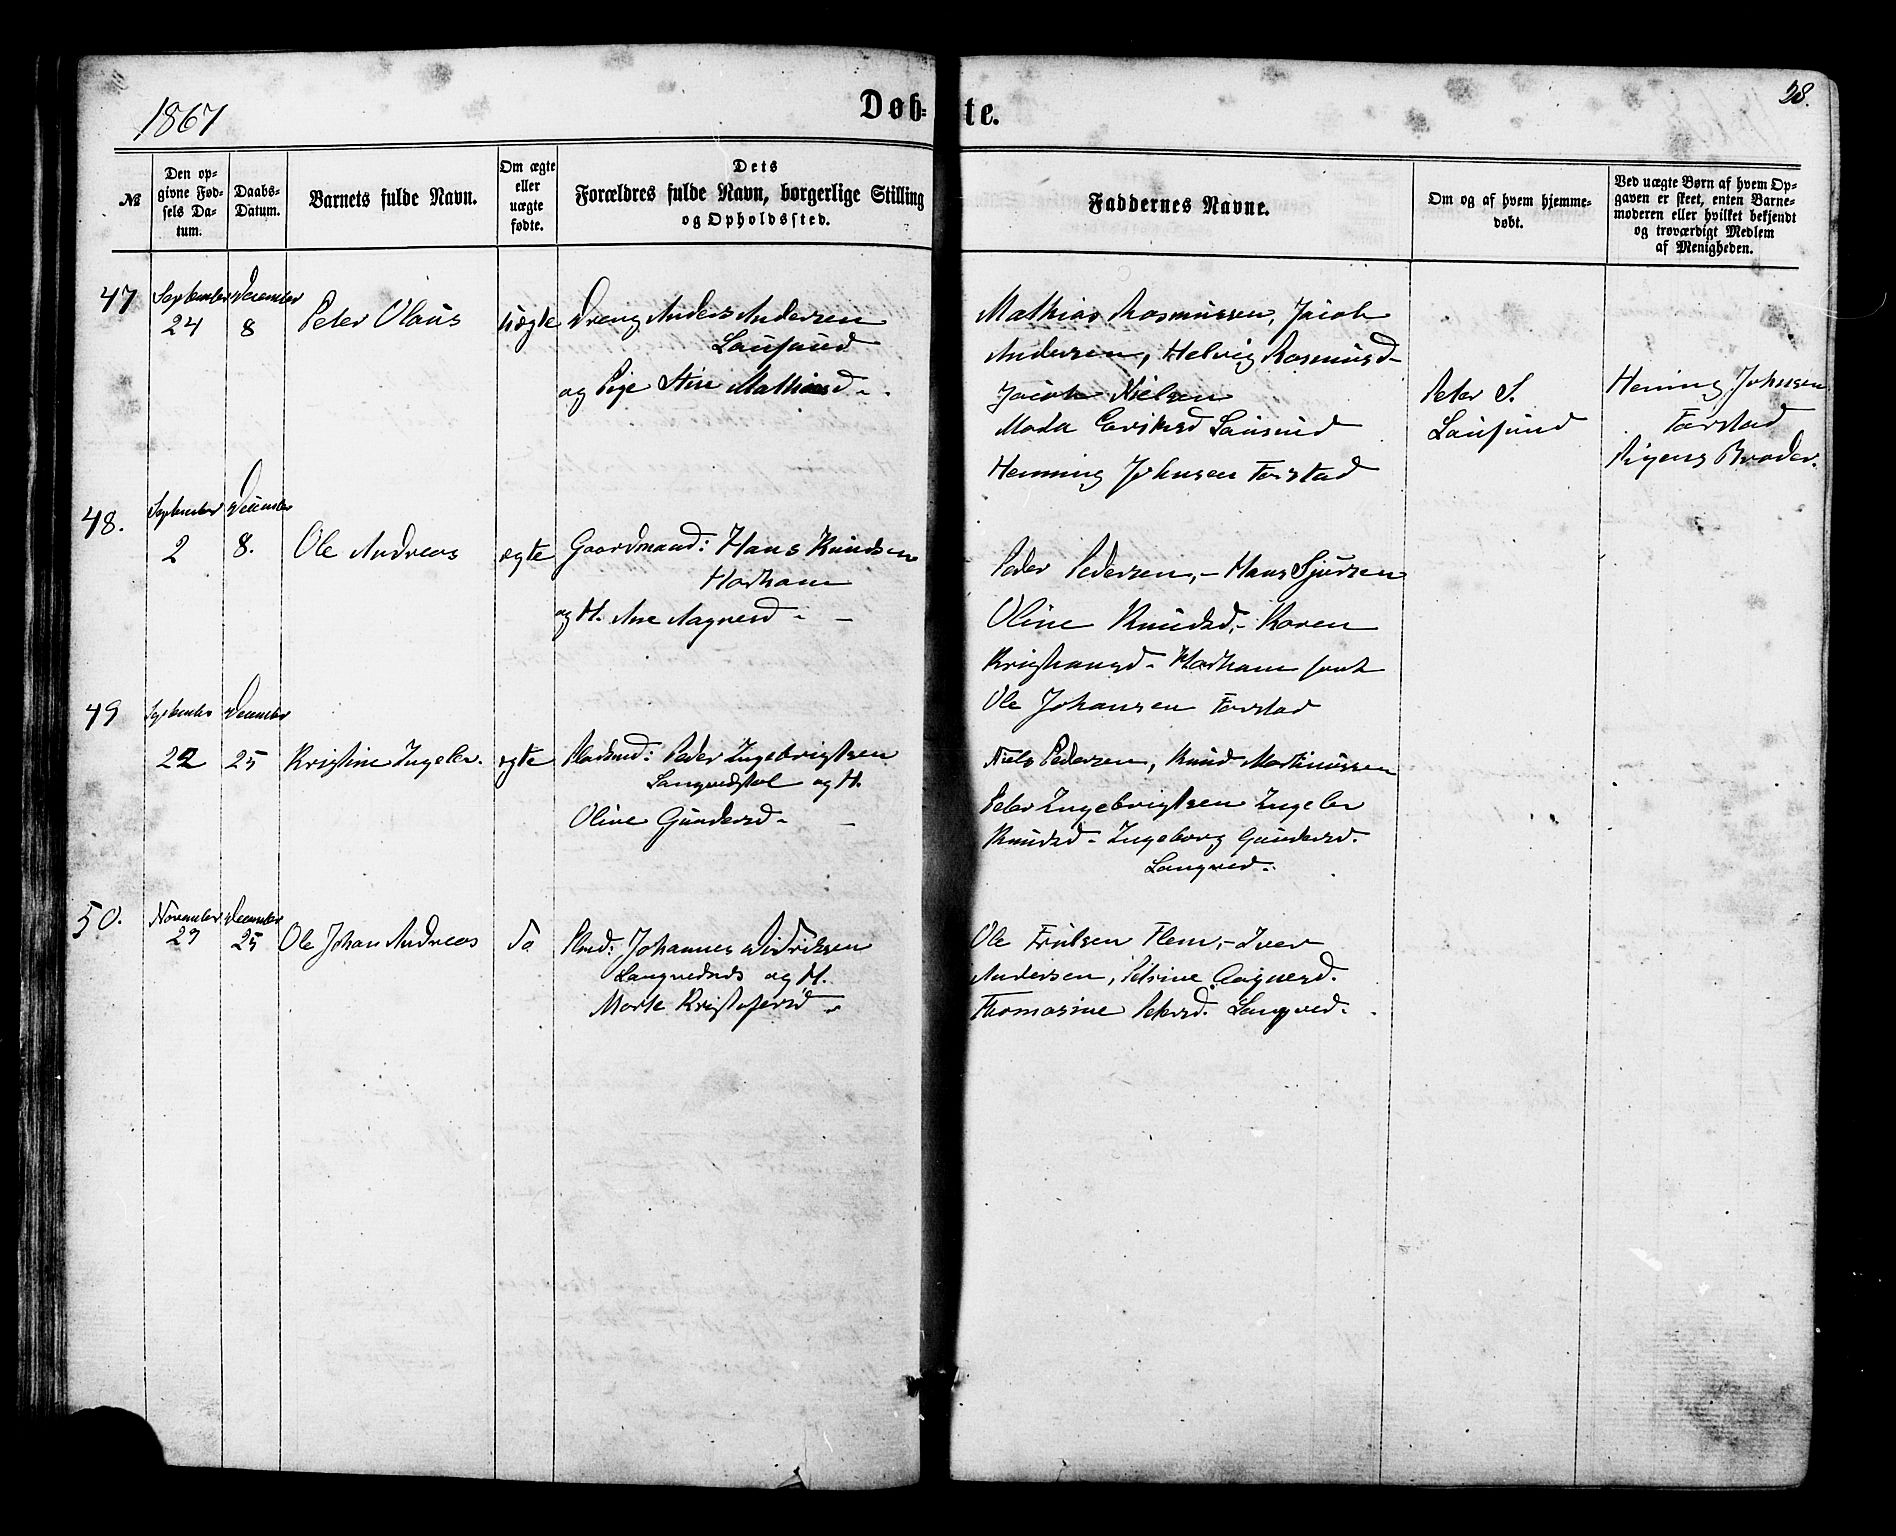 1867
Døb-te.
28.
№
Den op-
givne Fød-
sels Da-
tum.
Daabs-
Datum.
Barnets fulde Navn.
Om ægte
eller
uægte
fødte.
Dets
Forældres fulde Navn, borgerlige Stilling
og Opholdssted.
Faddernes Navne.
Om og af hvem hjemme-
døbt.
Ved uægte Børn af hvem Op-
gaven er skeet, enten Barne-
moderen eller hvilket bekjendt
og troværdigt Medlem
af Menigheden.
47
September
24
December
8
Peter Olaus
uægte
Dreng Anders Andersen
Lausund
og Pige Mathiasd -
Mathias Rasmussen, Jacob
Andersen, Helvig Rasmusd-
Jacob Nielsen
Lausund
Henning Johnsen Farstad
Peter S.
Lausund
Hening Johnsen
Farstad
Pigens Broder.
48.
September
2
December
8.
Ole Andreas
ægte
Gaardmand: Hans Knudsen
Harham
og H. Ane Aagnesd - -
Peder Pedersen, - Hans Sjursen
Oline Knudsd, - Karen
Kristiansd - Harham samt
Ole Johansen Farstad
49
September
22
December
25
Kristine Ingeler.
ægte
Pladsmd: Peder Ingebrigtsen
og H.
Oline Gundersd - -
Niels Pedersen, Knud Martinussen
Peter Ingebrigtsen Ingeler
Knudsd - Ingeborg Gundersd.
Langved -
50.
November
December
25
Ole Johan Andreas
do
Plmd: Johannes Didriksen
og H.
Marte Kristofersd -
Ole Flem, - Iver
Andersen, Petrine Aagnesd.
Thomasine Petersd. Langved - .